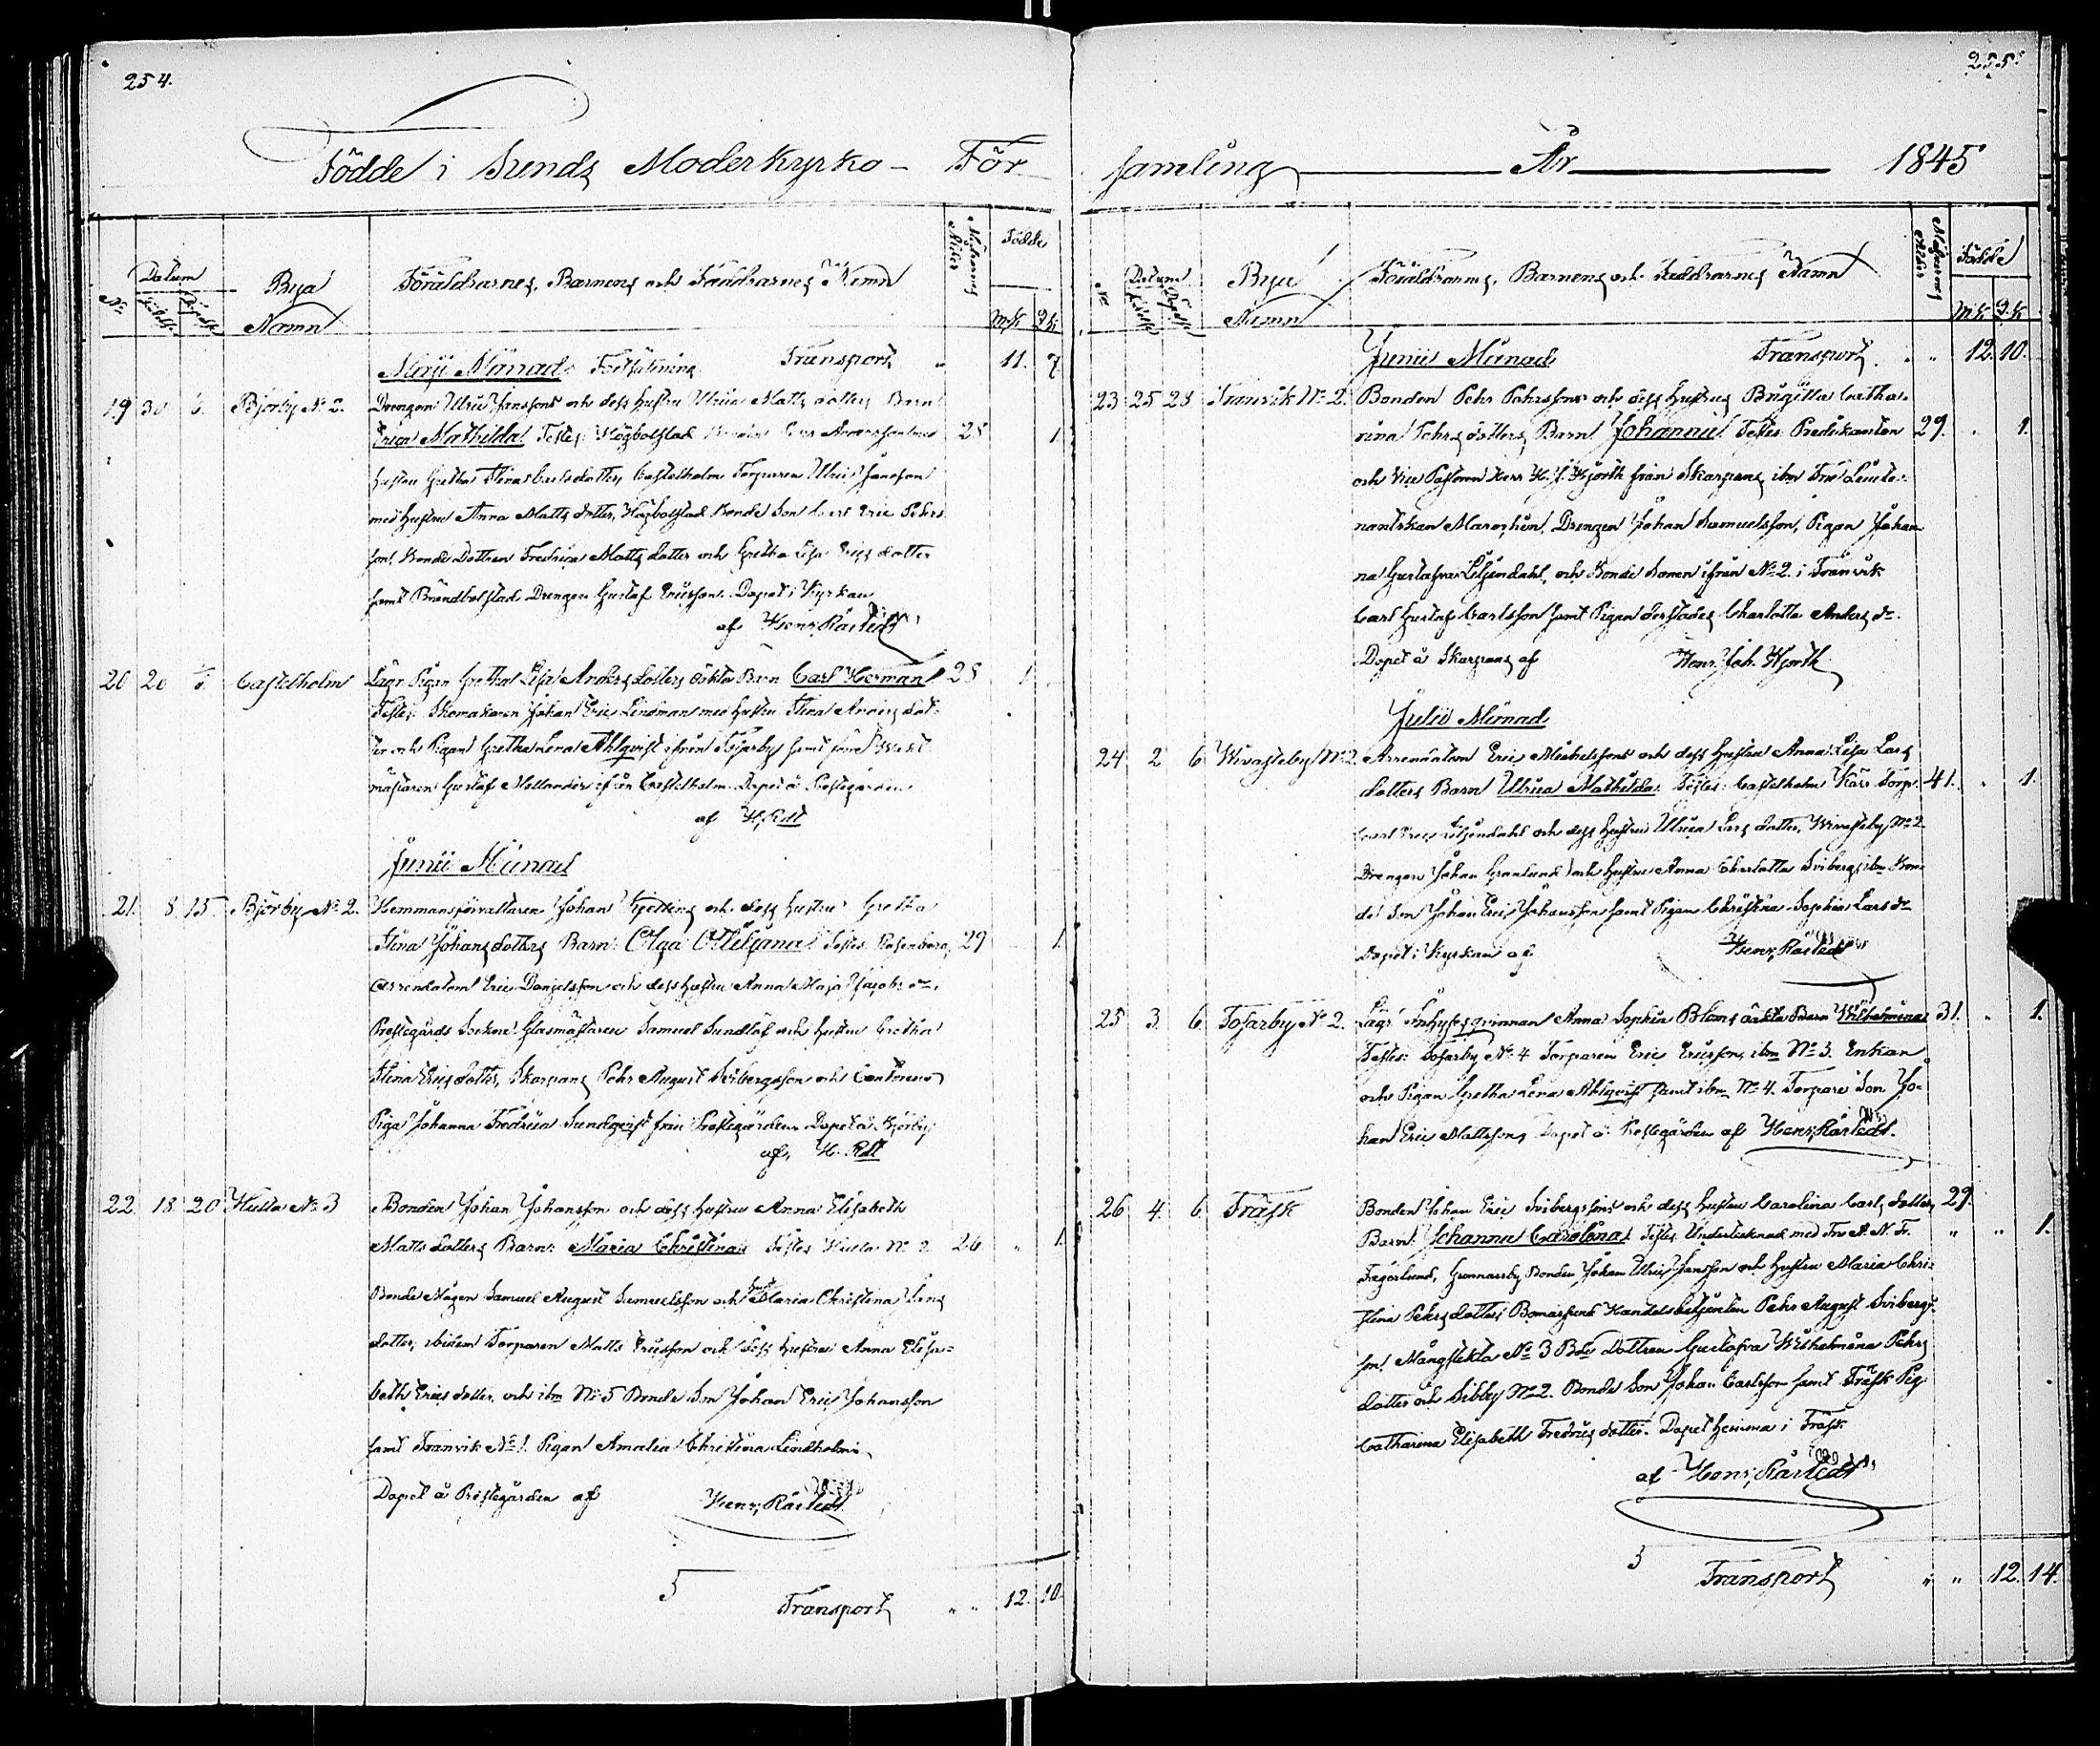 254.
Födde i Sunds Moderkyrko- För
No Datum Bya Namn Föräldrarnes, Barnens och Faddrarnes Namn Modrens Ålder Födde
Mk Qk
Maji Månad Fortsättning Transport " 11. 7
19 30 6. Björby No 2. Drengen Ulric Janssons och dess Hustru Ulrica Matts dotters Barn
Erica Mathilda Testes: Högbolstad Bonden Andersson med 28 1.
Hustru Gretha Stina Carls dotter, Castelholm Torparen Ulric Jansson
med Hustru Anna Matts dotter, Högbolstad Bonde Son Carl Eric Pehrs
son, Bonde Dottren Fredrica Matts dotter och Gretha Lisa Erics dotter
samt Brändbolstad Drengen Gustaf Ericsson. Döpet i Kyrkan
af Henr. Råstedt
20 20 Castelholm Lägr. Pigan Gretha Lisa Anders dotters oäkta Barn Carl Herman 28 1
Testes: Skomakaren Johan Eric Lindman med Hustru Stina Anders dot-
ter och Pigan Gretha Lena Ahlqvist ifrån Tosarby samt förre Wakt
mästaren Gustaf Mellander ifrån Castelholm. Döpet å Prestegården
af H. Rdt
Junii Månad
21. 8. 15. Björby No 2. Hemmansförvaltaren Johan Kjetting och dess Hustru Gretha
Stina Johans dotters Barn: Olga Otiliana Testes: Rosenberg, 29 1.
Arrendatorn Eric Danjelsson och dess Hustru Anna Maja Jacobs dr,
Prestegårds Glasmästaren Samuel Sundlöf och Hustru Gretha
Stina Erics dotter, Skarpans Pehr August Svibergsson och Contoirs
Piga Johanna Fredrica Sundqvist från Prestegården. Döpet å Björby
af H. Rdt
22. 18. 20 Hulta No 3 Bonden Johan Johansson och dess Hustru Anna Elisabeth
Matts dotters Barn: Maria Christina Testes Hulta No 2 26 " 1.
Bonde Mågen Samuel August Samuelsson och Hust Maria Christina Jans
dotter, ibidem Torparen Matts Ericsson och dess Hustru Anna Elisa-
beth Erics dotter, och ibm No 5 Bonde Son Johan Eric Johansson
samt Tranvik No 1. Pigan Amalia Christina Lindholm.
Döpet å Prestegården af Henr. Råstedt
Transport " " 12. 10.
255.
samling År 1845
No Datum Bya Namn Föräldrarnes, Barnens och Faddrarnes Namn Modrens Ålder Födde
Mk Qk
Junii Månad Transport. " 12. 10.
23 25 28 Tranvik No 2. Bonden Pehr Pehrssons och dess Hustrus Brigitta Catha-
rina Pehrs dotters, Barn Johanna Testes Predikanten 29. 1.
och Vice Pastoren Herr H. J. Hjorth från Skarpans, ibm Fru Leute-
nantskan Drengen Johan Samuelsson, Pigan Johan
na Gustafva Liljendahl, och Bonde Sonen ifrån No 2 i Tranvik
Carl Gustaf Carlsson samt Pigan derstädes Charlotta Anders dr.
Döpet å Skarpans af Henr. Joh. Hjorth
Julii Månad
24 2 6 Wivasteby No 2 Arrendatorn Eric Michelssons och dess Hustru Anna Lisa Lars
dotters Barn Ulrica Mathilda. Testes: Castelholm Kärr Torp. 41. 1.
Carl Eric Liljendahl och dess Hustru Ulrica Lars dotter, Wivasteby No 2
Drengen Johan Granlund och Hustru Anna Charlotta Sviberg, ibm Bon-
de Son Johan Eric Johansson samt Pigan Christina Sophia Lars dr
Döpet i Kyrkan af Henr. Råstedt
25 3. 6. Tosarby No 2. Lägr Inhyses qvinnan Anna Sophia Bloms oäkta Barn Wilhelmina 31. " 1.
Testes: Tosarby No 4 Torparen Eric Ericsson, ibm No 3. Enkan
och Pigan Gretha Lena Ahlqvist samt ibm No 4. Torpare Son Jo-
han Eric Mattsson. Döpet å Prestegården af Henr. Råstedt.
26 4. 6 Träsk Bonden Johan Eric Svibergssons och dess Hustru Carolina Carls dotters 29.
Barn: Johanna Carolina. Testes. Undertecknad med Fru A. N. F. " " 1.
Fagerlund, Gunnarsby Bonden Johan Ulric Jansson och Hustru Maria Chri-
stina Pehrs dotter, Bomarsund Handelsbetjenten Pehr August Svibergs-
son, Mångstekta No 3 Bde Dottren Gustafva Wilhelmina Pehrs
dotter och Sibby No 2. Bonde Son Johan Carlsson samt Träsk Pig.
Catharina Elisabeth Fredrics dotter. Döpet hemma i Träsk
af Henr. Råstedt
Transport " " 12. 14.